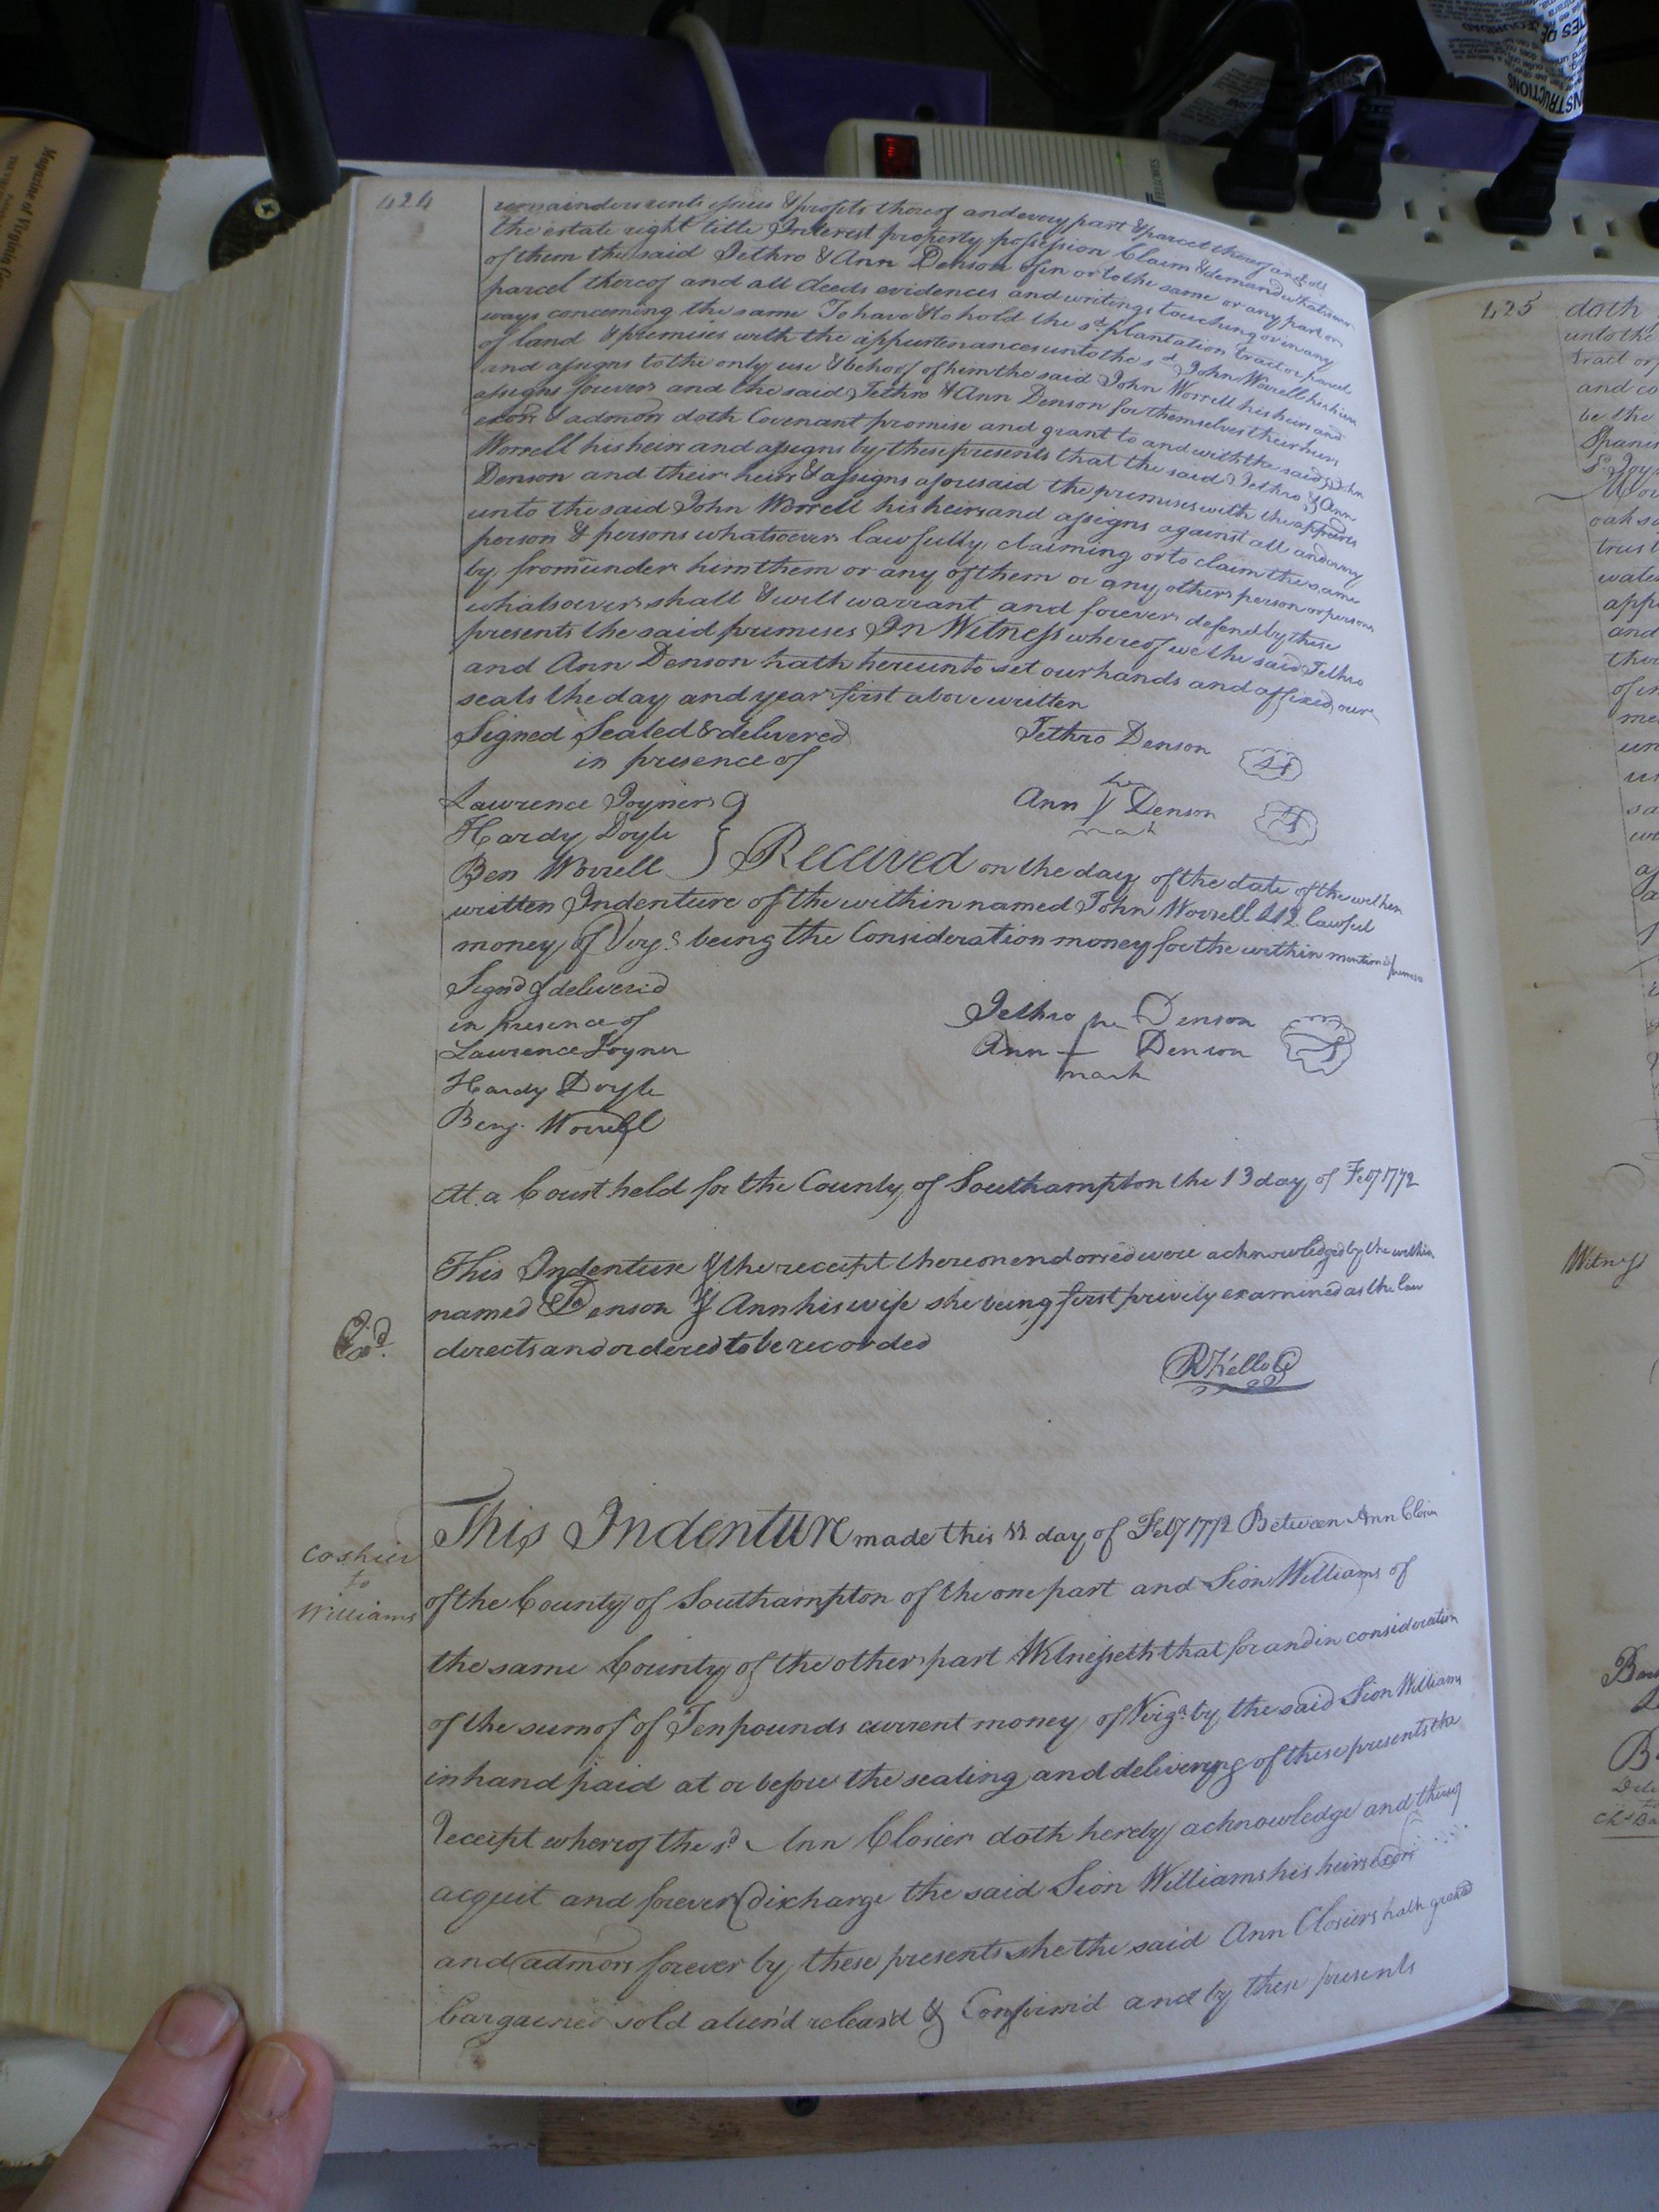 424
remainders rents issues & profits thereof and every part & parcel thereof and all
the estate right title Interest property possession Claim & demand whatsoever
of them the said Jethro & Ann Denson of in or to the same or any part or
parcel thereof and all deeds evidences and writings touching or in any
ways concerning the same To have & to hold the sd. plantation tract or parcel
of land & premises with the appurtenances unto the sd. John Worrell his heirs
and assigns to the only use & behoof of him the said John Worrell his heirs and
assigns forever and the said Jethro & Ann Denson for themselves their heirs
exors & admors doth Covenant promise and grant to and with the said John
Worrell his heirs and assigns by these presents that the said Jethro & Ann
Denson and their heirs & assigns aforesaid the premises with the appurts
unto the said John Worrell his heirs and assigns against all and every
person & persons whatsoever lawfully claiming or to claim the same
by from under him them or any of them or any other person or persons
whatsoever shall & will warrant and forever defend by these
presents the said premises In Witness whereof we the said Jethro
and Ann Denson hath hereunto set our hands and affixed our
seals the day and year first above written
Signed Sealed & delivered
in presence of
Jethro Denson
Lawrence Joyner
Ann her Denson
mark
Hardy Doyle
Ben Worrell } Received on the day of the date of the within
written Indenture of the within named John Worrell £12 lawful
money of Virga. being the Consideration money for the within mentioned premises
Signd & delivered
in presence of
Lawrence Joyner
Hardy Doyle
Benj. Worrell
Jethro her Denson
Ann + Denson
mark
At a Court held for the County of Southampton the 13 day of Feby 1772
This Indenture & the receipt thereon endorsed were acknowledged by the within
named Denson & Ann his wife she being first privily examined as the law
directs and ordered to be recorded
Exd.
R Kello C
Coshier
to
Williams
This Indenture made this day of Feby 1772 Between Ann Closier
of the County of Southampton of the one part and Sion Williams of
the same County of the other part Witnesseth that for and in consideration
of the sum of of Ten pounds current money of Virga. by the said Sion Williams
in hand paid at or before the sealing and delivering of these presents the
receipt whereof the sd. Ann Closier doth hereby acknowledge and thereof
acquit and forever discharge the said Sion Williams his heirs exors
and admors forever by these presents she the said Ann Closiers hath granted
bargained sold alien'd releas'd & Confirm'd and by these presents
425
doth
unto the
tract or
and co
be the
Witness
Magazine of Virginia
FELLOWES
INSTRUCTIONS